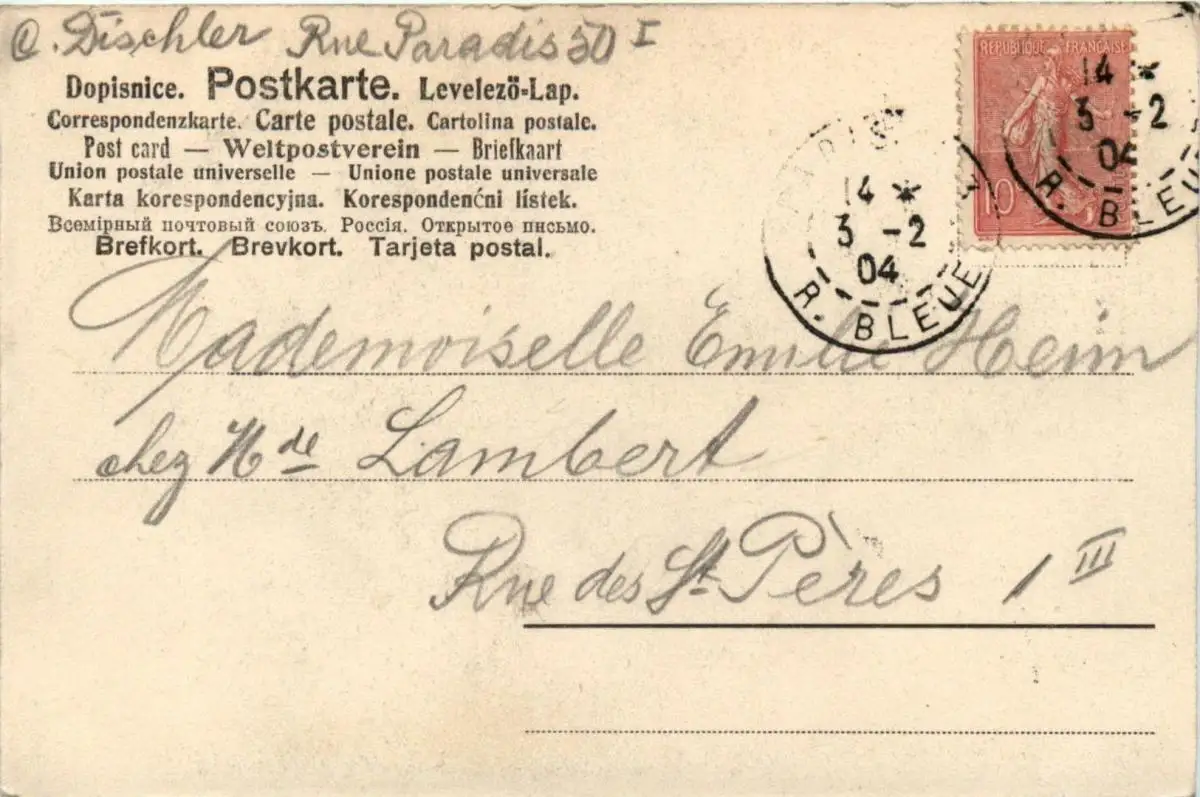 C. Dischler Rue Paradis 50 I
Dopisnice. Postkarte. Levelező-Lap.
Correspondenzkarte. Carte postale. Cartolina postale.
Post card — Weltpostverein — Briefkaart
Union postale universelle — Unione postale universale
Karta korespondencyjna. Korespondenćni lístek.
Всемірный почтовый союзъ. Россія. Открытое письмо.
Brefkort. Brevkort. Tarjeta postal.
REPUBLIQUE FRANÇAISE
10
14 *
3 -2
04
R. BLEUE
PARIS
14 *
3 -2
04
R. BLEUE
Mademoiselle Emilie Heim
chez Mde Lambert
Rue des St. Pères 1 III